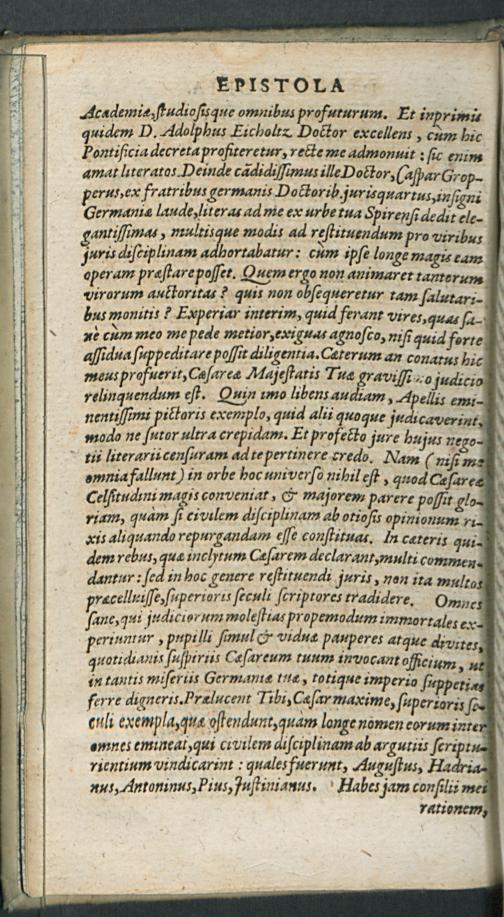 EPISTOLA
Academiæ, studiosisque omnibus profuturum. Et inprimis
quidem D. Adolphus Eicholtz Doctor excellens, cùm hic
Pontificia decreta profiteretur, recte me admonuit : sic enim
amat literatos. Deinde cādidissimus ille Doctor, Caspar Grop-
perus, ex fratribus germanis Doctorib. jurisquartus, insigni
Germaniæ laude, literas ad me ex urbe tua Spirensi dedit ele-
gantissimas, multisque modis ad restituendum pro viribus
juris disciplinam adhortabatur : cùm ipse longe magis eam
operam præstare posset. Quem ergo non animaret tantorum
virorum auctoritas ? quis non obsequeretur tam salutari-
bus monitis ? Experiar interim, quid ferant vires, quas sa-
nè cùm meo me pede metior, exiguas agnosco, nisi quid forte
assidua suppeditare possit diligentia. Cæterum an conatus hic
meus profuerit, Cæsareæ Majestatis Tuæ gravissimo judicio
relinquendum est. Quin imo libens audiam, Apellis emi-
nentissimi pictoris exemplo, quid alii quoque judicaverint,
modo ne sutor ultra crepidam. Et profecto jure hujus nego-
tii literarii censuram ad te pertinere credo. Nam ( nisi me
omnia fallunt ) in orbe hoc universo nihil est, quod Cæsareæ
Celsitudini magis conveniat, & majorem parere possit glo-
riam, quàm si civilem disciplinam ab otiosis opinionum ri-
xis aliquando repurgandam esse constituas. In cæteris qui-
dem rebus, quæ inclytum Cæsarem declarant, multi commen-
dantur : sed in hoc genere restituendi juris, non ita multos
præcelluisse, superioris seculi scriptores tradidere. Omnes
sane, qui judiciorum molestias propemodum immortales ex-
periuntur, pupilli simul & viduæ pauperes atque divites,
quotidianis suspiriis Cæsareum tuum invocant officium, ut
in tantis miseriis Germaniæ tuæ, totique imperio suppetias
ferre digneris. Prælucent Tibi, Cæsar maxime, superioris se-
culi exempla, quæ ostendunt, quàm longe nomen eorum inter
omnes emineat, qui civilem disciplinam ab argutiis scriptu-
rientium vindicarint : quales fuerunt, Augustus, Hadria-
nus, Antoninus, Pius, Justinianus. Habes jam consilii mei
rationem,